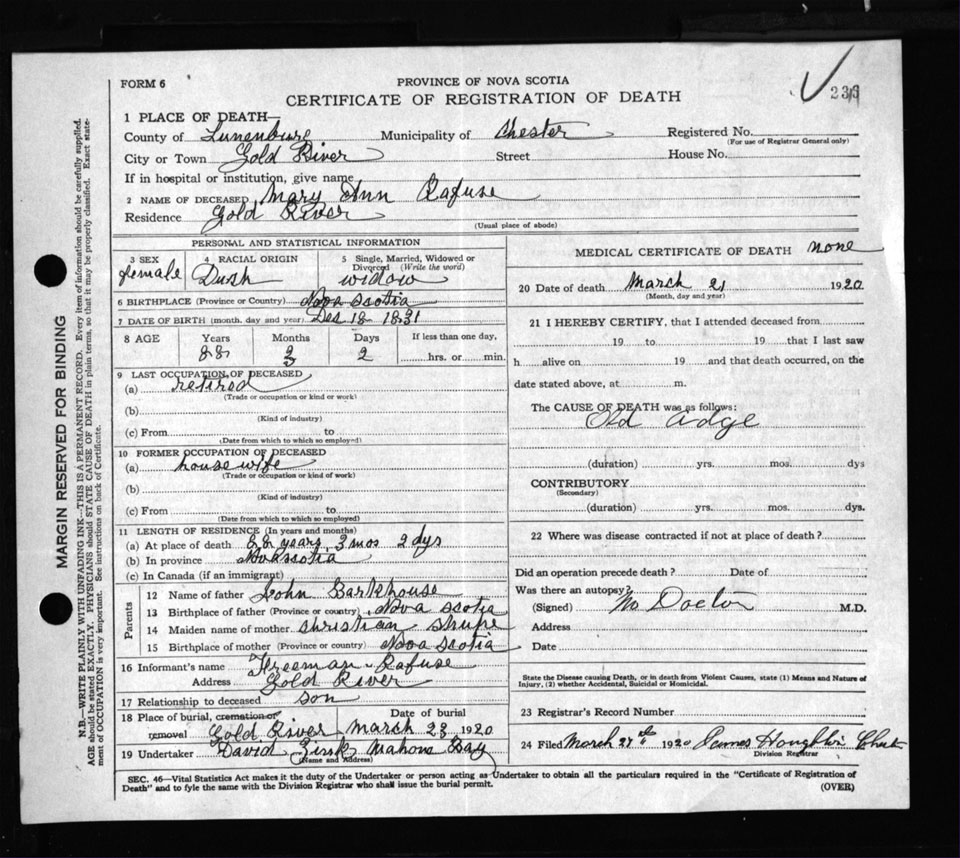 FORM 6
PROVINCE OF NOVA SCOTIA
CERTIFICATE OF REGISTRATION OF DEATH
1 PLACE OF DEATH—
County of Lunenburg Municipality of Chester Registered No.
(For use of Registrar General only)
City or Town Gold River Street House No.
If in hospital or institution, give name
2 NAME OF DECEASED Mary Ann Rafuse
Residence Gold River
(Usual place of abode)
PERSONAL AND STATISTICAL INFORMATION
3 SEX 4 RACIAL ORIGIN 5 Single, Married, Widowed or Divorced (Write the word)
female widow
6 BIRTHPLACE (Province or Country) Nova Scotia
7 DATE OF BIRTH (month, day and year) Des 18 1831
8 AGE Years Months Days If less than one day,
88 3 2 hrs. or min.
9 LAST OCCUPATION OF DECEASED
(a) retired
(Trade or occupation or kind or work)
(b)
(Kind of industry)
(c) From to
(Date from which to which so employed)
10 FORMER OCCUPATION OF DECEASED
(a) house wife
(Trade or occupation or kind of work)
(b)
(Kind of industry)
(c) From to
(Date from which to which so employed)
11 LENGTH OF RESIDENCE (In years and months)
(a) At place of death 88 years, 3 mos 2 dys
(b) In province Nova scotia
(c) In Canada (if an immigrant)
Parents
12 Name of father John Barkhouse
13 Birthplace of father (Province or country) Nova Scotia
14 Maiden name of mother Christian
15 Birthplace of mother (Province or country) Nova Scotia
16 Informant's name Freeman Rafuse
Address Gold River
17 Relationship to deceased son
18 Place of burial, cremation or Date of burial
removal Gold River March 23 1920
19 Undertaker David Zink Mahone Bay
(Name and Address)
MEDICAL CERTIFICATE OF DEATH none
20 Date of death March 21 1920
(Month, day and year)
21 I HEREBY CERTIFY, that I attended deceased from
19 to 19 that I last saw
h alive on 19 and that death occurred, on the
date stated above, at m.
The CAUSE OF DEATH was as follows:
Old adge
(duration) yrs. mos. dys
CONTRIBUTORY
(Secondary)
(duration) yrs. mos. dys.
22 Where was disease contracted if not at place of death?
Did an operation precede death? Date of
Was there an autopsy?
(Signed) No Doctor M.D.
Address
Date
State the Disease causing Death, or in death from Violent Causes, state (1) Means and Nature of
Injury, (2) whether Accidental, Suicidal or Homicidal.
23 Registrar's Record Number
24 Filed March 1920 James
Division Registrar
SEC. 46—Vital Statistics Act makes it the duty of the Undertaker or person acting as Undertaker to obtain all the particulars required in the "Certificate of Registration of
Death" and to fyle the same with the Division Registrar who shall issue the burial permit.
(OVER)
MARGIN RESERVED FOR BINDING
N.B.—WRITE PLAINLY WITH UNFADING INK—THIS IS A PERMANENT RECORD. Every item of information should be carefully supplied.
AGE should be stated EXACTLY. PHYSICIANS should STATE CAUSE OF DEATH in plain terms, so that it may be properly classified. Exact state-
ment of OCCUPATION is very important. See instructions on back of Certificate.